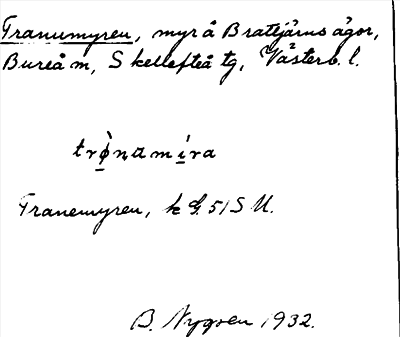 Tranumyren, myr å Brattjärns ägor,
Bureå m, Skellefteå tg, Västerb. l.
trø̀namíra
Tranemyren, k G. 51 S U.
B. Nygren 1932.